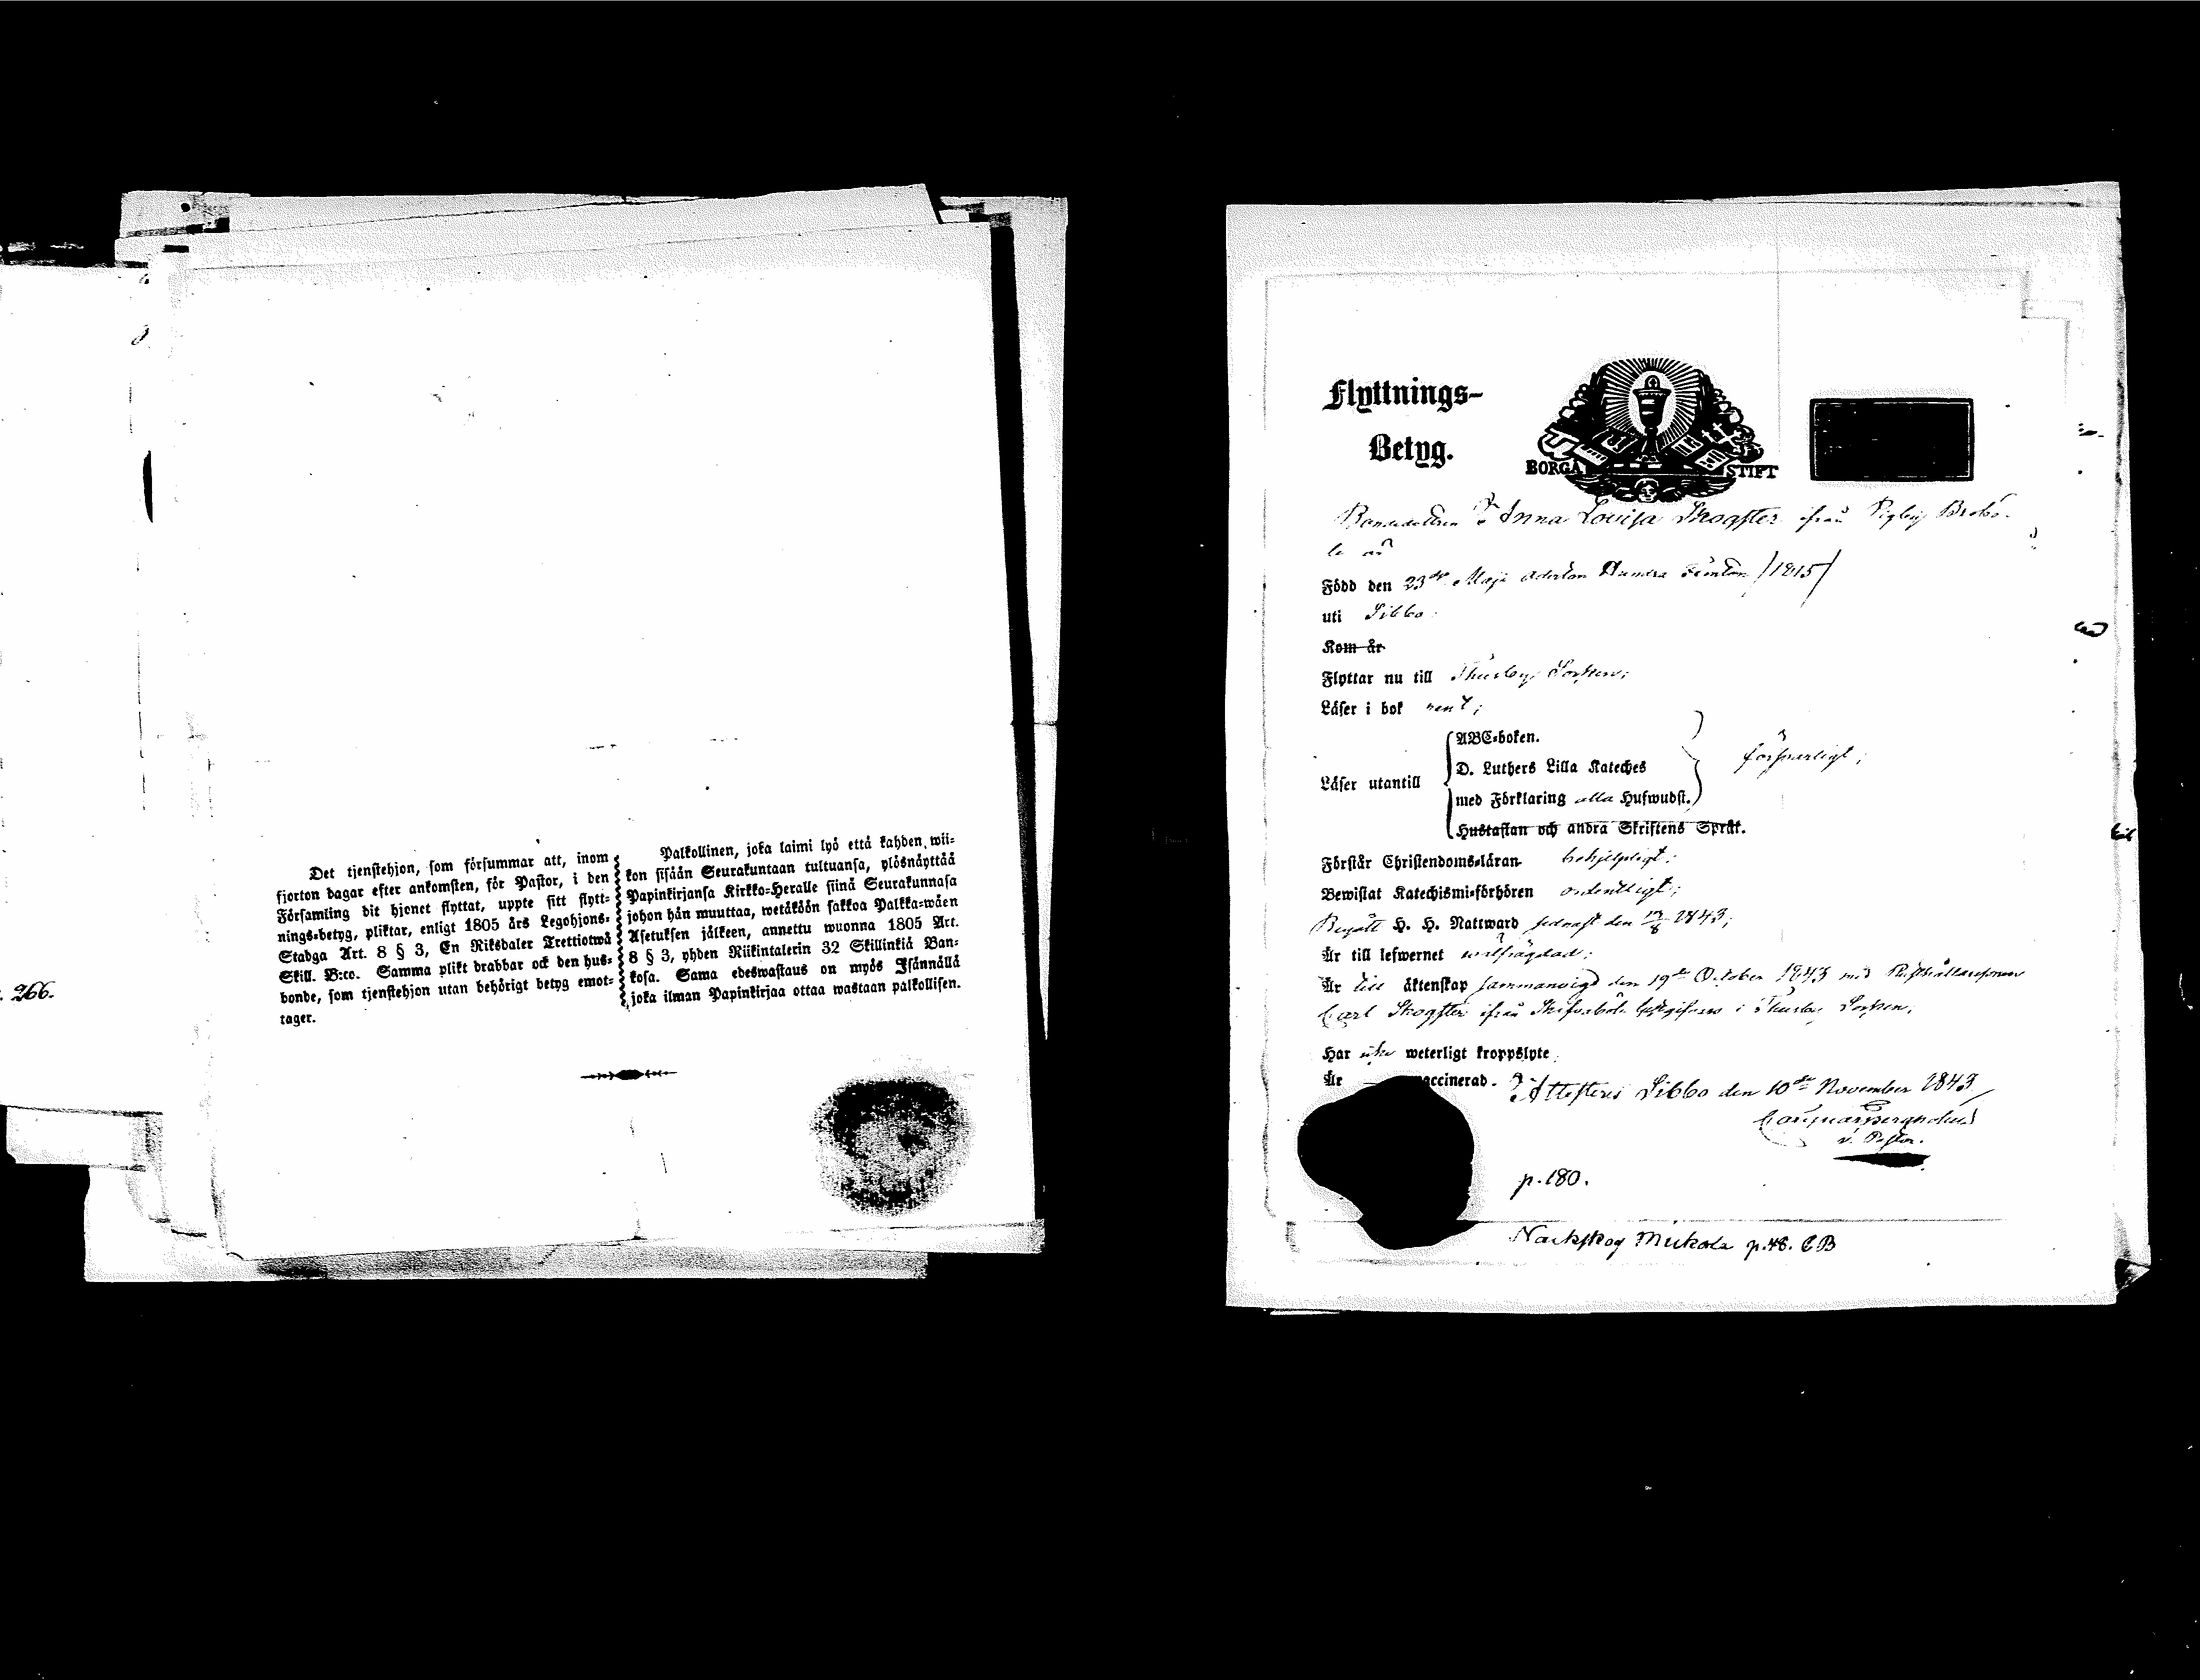 266.
Det tjenstehjon, som försummar att, inom
fjorton dagar efter ankomsten, för Pastor, i den
Församling dit hjonet flyttat, uppte sitt flytt-
nings-betyg, pliktar, enligt 1805 års Legohjons-
Stadga Art. 8 § 3, En Riksdaler Trettiotwå
Skill. B:co. Samma plikt drabbar ock den hus-
bonde, som tjenstehjon utan behörigt betyg emot-
tager.
Palkollinen, joka laimi lyö että kahden wii-
kon sisään Seurakuntaan tultuansa, ylösnäyttää
Papinkirjansa Kirkko-Heralle siinä Seurakunnasa
johon hän muuttaa, wetäköön sakkoa Palkka-wäen
Asetuksen jälkeen, annettu wuonna 1805 Art.
8 § 3, yhden Riikintalerin 32 Skillinkiä Ban-
kosa. Sama edeswastaus on myös Isännällä
joka ilman Papinkirjaa ottaa wastaan palkollisen.
Flyttnings-
Betyg.
BORGÅ STIFT
Bondedottren Anna Lovisa Skogster ifrån Pigby Brobö-
le är
Född den 23de Maji Aderton Hundra Femton /1815/
uti Sibbo.
Kom år
Flyttar nu till Thusby Socken;
Läser i bok rent;
Läser utantill
ABC-boken.
D. Luthers Lilla Kateches
med Förklaring alla Hufwudst.
Hustaflan och andra Skriftens Språk.
försvarligt;
Förstår Christendoms-läran behjelpligt;
Bewistat Katechismi-förhören ordentligt;
Begått H. H. Nattward sednast den 1843;
Är till lefwernet wälfrägdad;
Är till äktenskap sammanvigd den 19de October 1843 med
Carl Skogster ifrån i Thusby Socken;
Har icke weterligt kroppslyte
Är vaccinerad. Attesteras Sibbo den 10de November 1843
v. Pastor.
p. 180.
Nackskog Mickola p. 48. CB